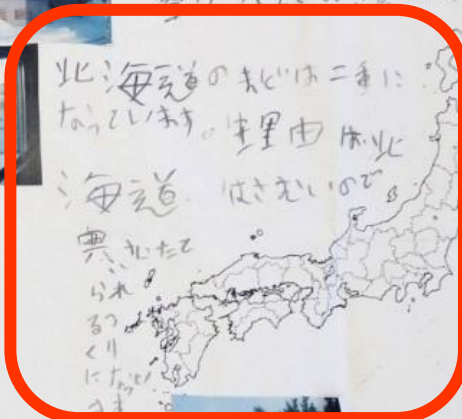 北海道のまどは二重に
なっています。理由は北
海道はさむいので
寒
られ
るつ
くり
になってい
ます